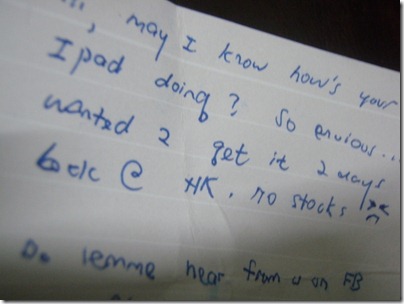 !!!, may I know how's your
Ipad doing? So envious...
wanted 2 get it 2 days
back @ HK, no stocks
Do lemme hear from u on FB